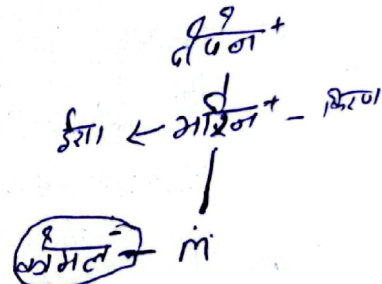 दीपन +
ईशा ← मारिन + – किरण
कोमल – m